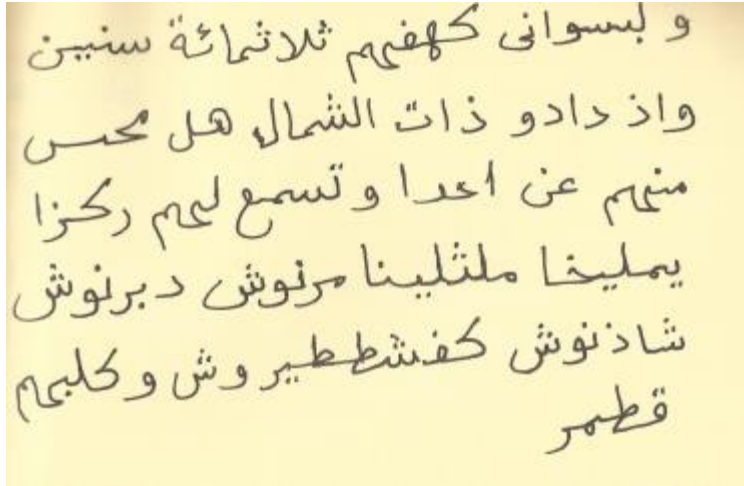 و لبسوانى كهفهم ثلاثمائة سنين
واذ دادو ذات الشمال هل محس
منهم عن احدا و تسمع لهم ركزا
يمليخا ملثلينا مرنوش دبرنوش
شاذنوش كفشططيروش وكلبهم
قطمر